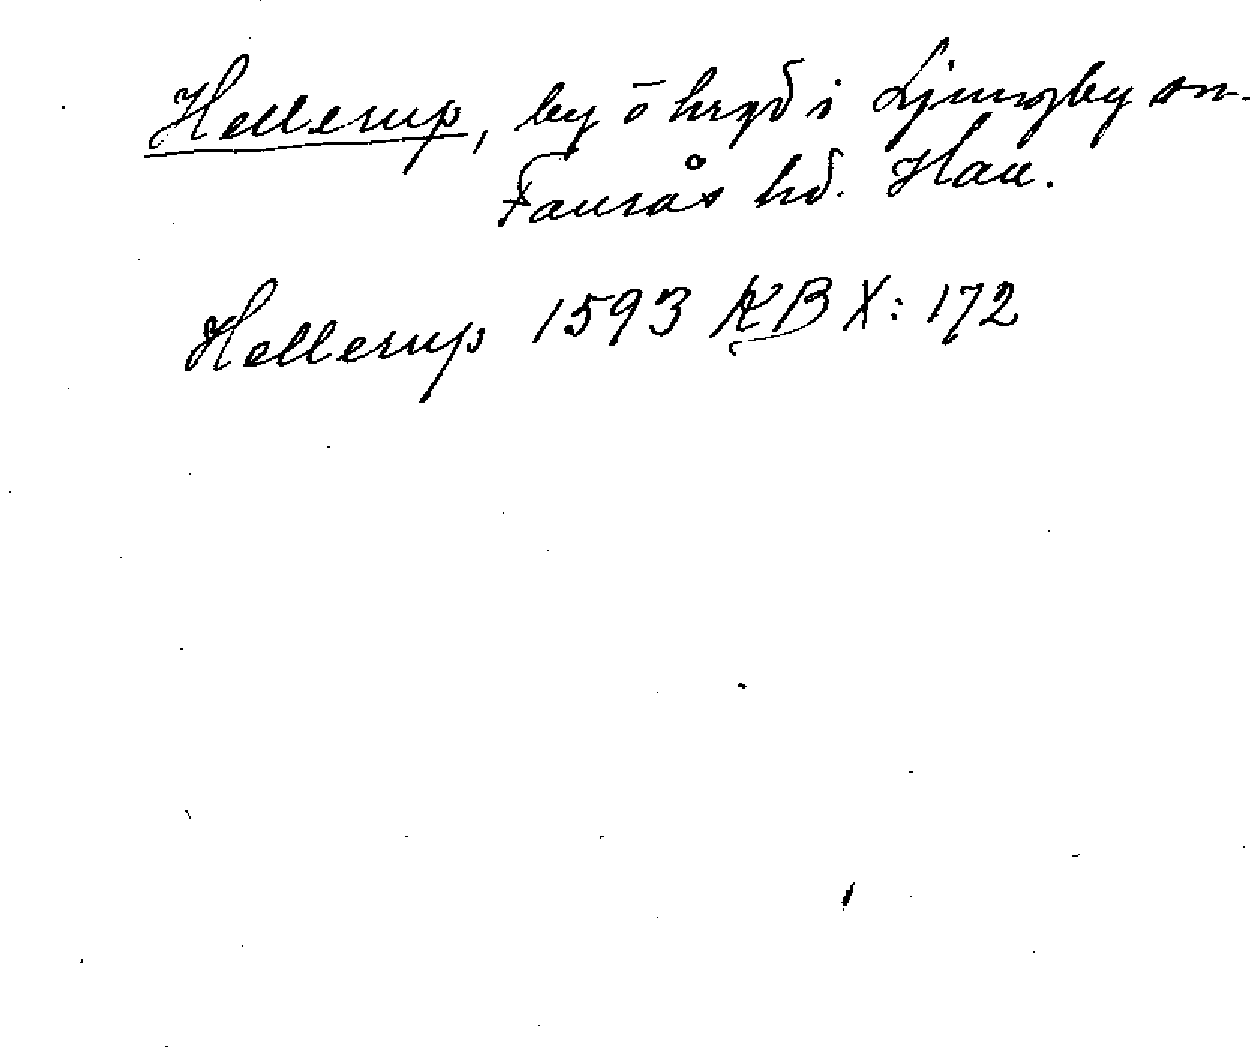 Hellerup, by o hrgd i Ljungby sn.
Faurås hd. Hall.
Hellerup 1593 KB X: 172